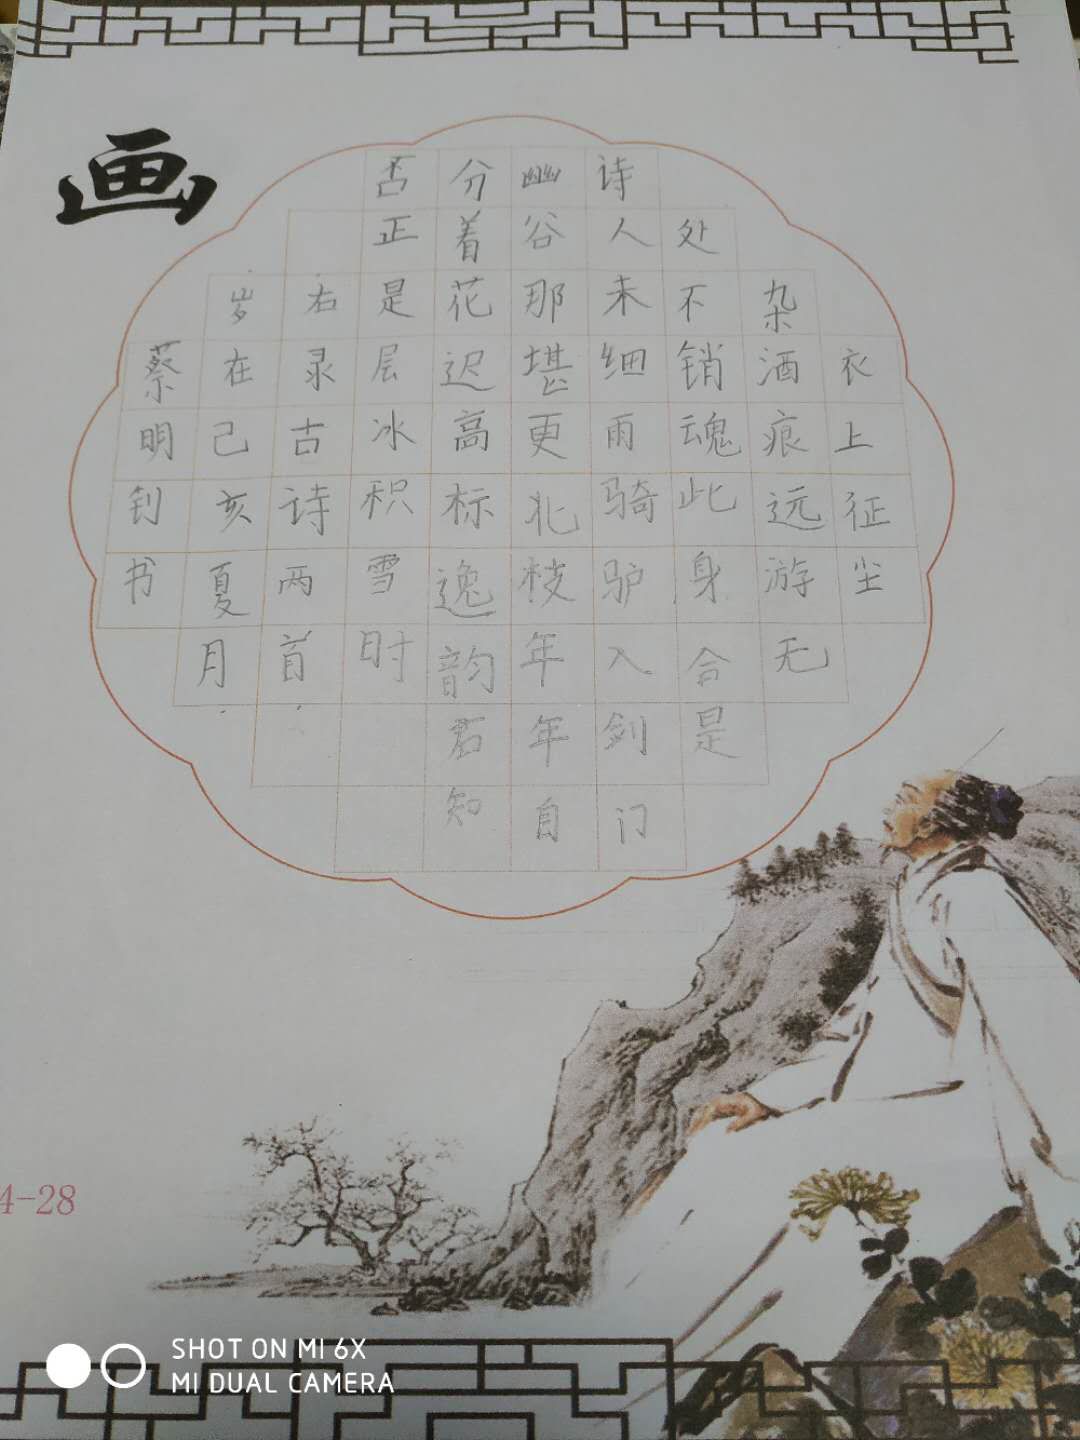 画
衣上征尘
杂酒痕远游无
处不销魂此身合是
诗人未细雨骑驴入剑门
幽谷那堪更北枝年年自
分着花迟高标逸韵君知
否正是层冰积雪时
右录古诗两首
岁在己亥夏月
蔡明钊书
4-28
SHOT ON MI 6X
MI DUAL CAMERA